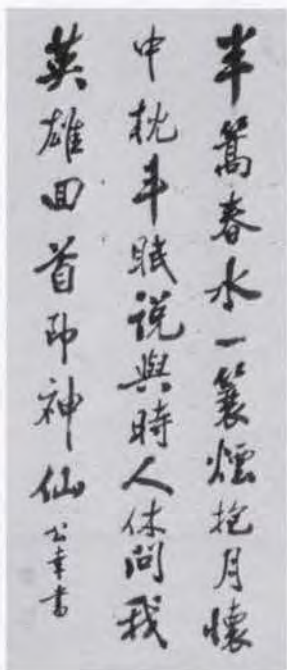 半篙春水一簑煙抱月懷
中枕斗眠說與時人休問我
英雄回首即神仙 公幸書